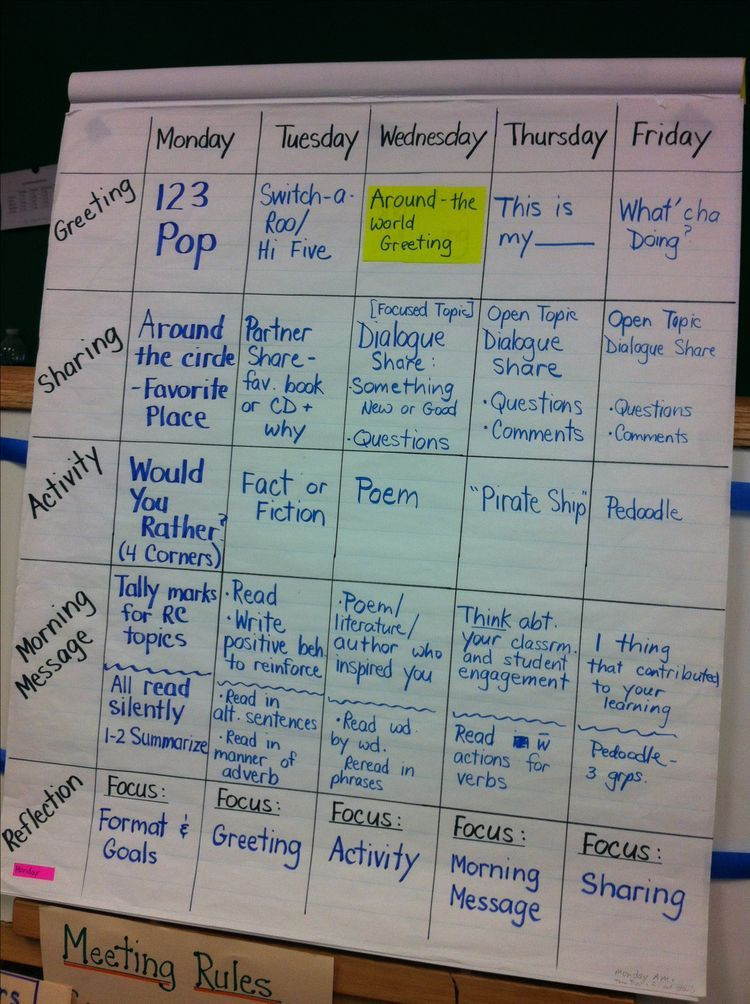 Monday Tuesday Wednesday Thursday Friday
Greeting
123
Pop
Switch-a-
Roo/
Hi Five
Around-the
world
Greeting
This is
my____
What'cha
Doing?
Sharing
Around
the circle
-Favorite
Place
Partner
Share-
fav. book
or CD +
why
[Focused Topic]
Dialogue
Share:
·Something
New or Good
·Questions
Open Topic
Dialogue
Share
·Questions
·Comments
Open Topic
Dialogue Share
·Questions
·Comments
Activity
Would
You
Rather?
(4 Corners)
Fact or
Fiction
Poem
"Pirate Ship"
Pedoodle
Morning
Message
Tally marks
for RC
topics
All read
silently
1-2 Summarize
·Read
·Write
positive beh.
to reinforce
·Read in
alt. sentences
·Read in
manner of
adverb
·Poem/
literature/
author who
inspired you
·Read wd.
by wd.
Reread in
phrases
Think abt.
your classrm.
and student
engagement
Read w̄
actions for
verbs
1 thing
that contributed
to your
learning
Pedoodle-
3 grps.
Reflection
Monday
Focus:
Format &
Goals
Focus:
Greeting
Focus:
Activity
Focus:
Morning
Message
Focus:
Sharing
Meeting Rules
Monday A.M.